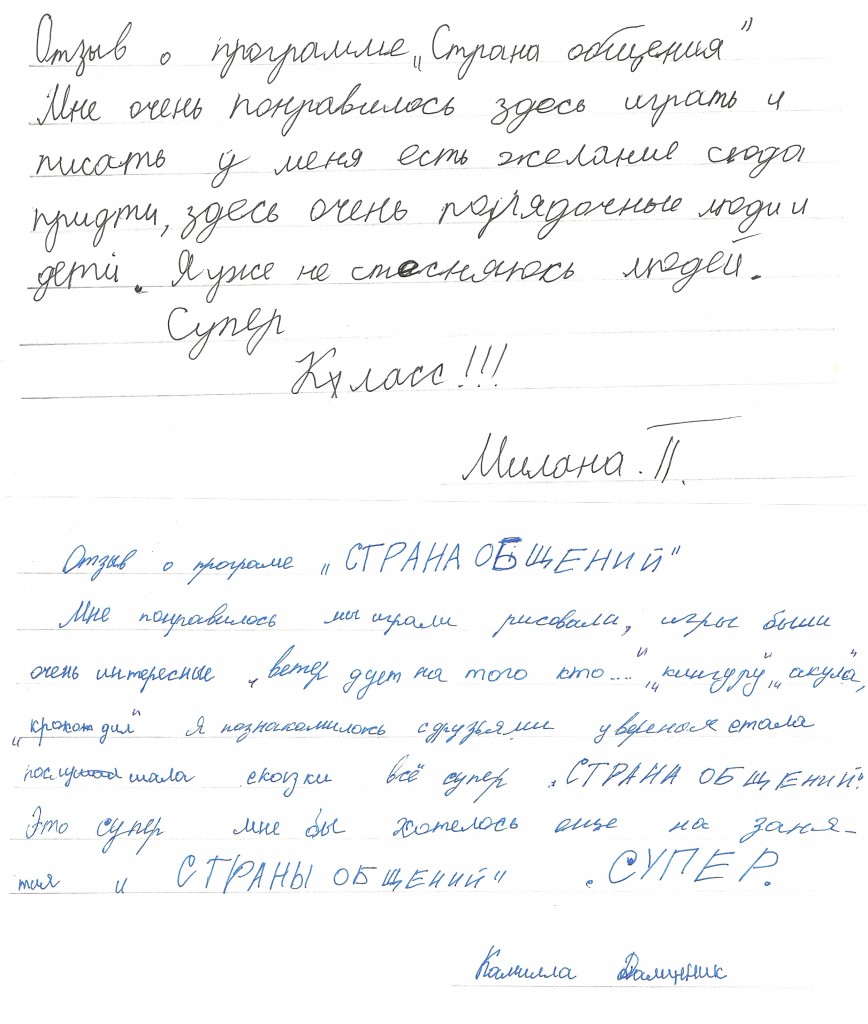 Отзыв о программе „Страна общения”
Мне очень понравилось здесь играть и
писать у меня есть желание сюда
придти, здесь очень порядочные люди и
дети. Я уже не стесняюсь людей.
Супер
Класс!!!
Милана. П.
Отзыв о програме „СТРАНА ОБЩЕНИЙ"
Мне понравилось мы играли рисовала, игры были
очень интересные „ветер дует на того кто...." „кингуру" „акула",
„крокодил" я познакомилась с друзьями увереной стала
послушала сказки всё супер „СТРАНА ОБЩЕНИЙ".
Это супер мне бы хотелось еще на заня-
тия и СТРАНЫ ОБЩЕНИЙ" . СУПЕР.
Камилла